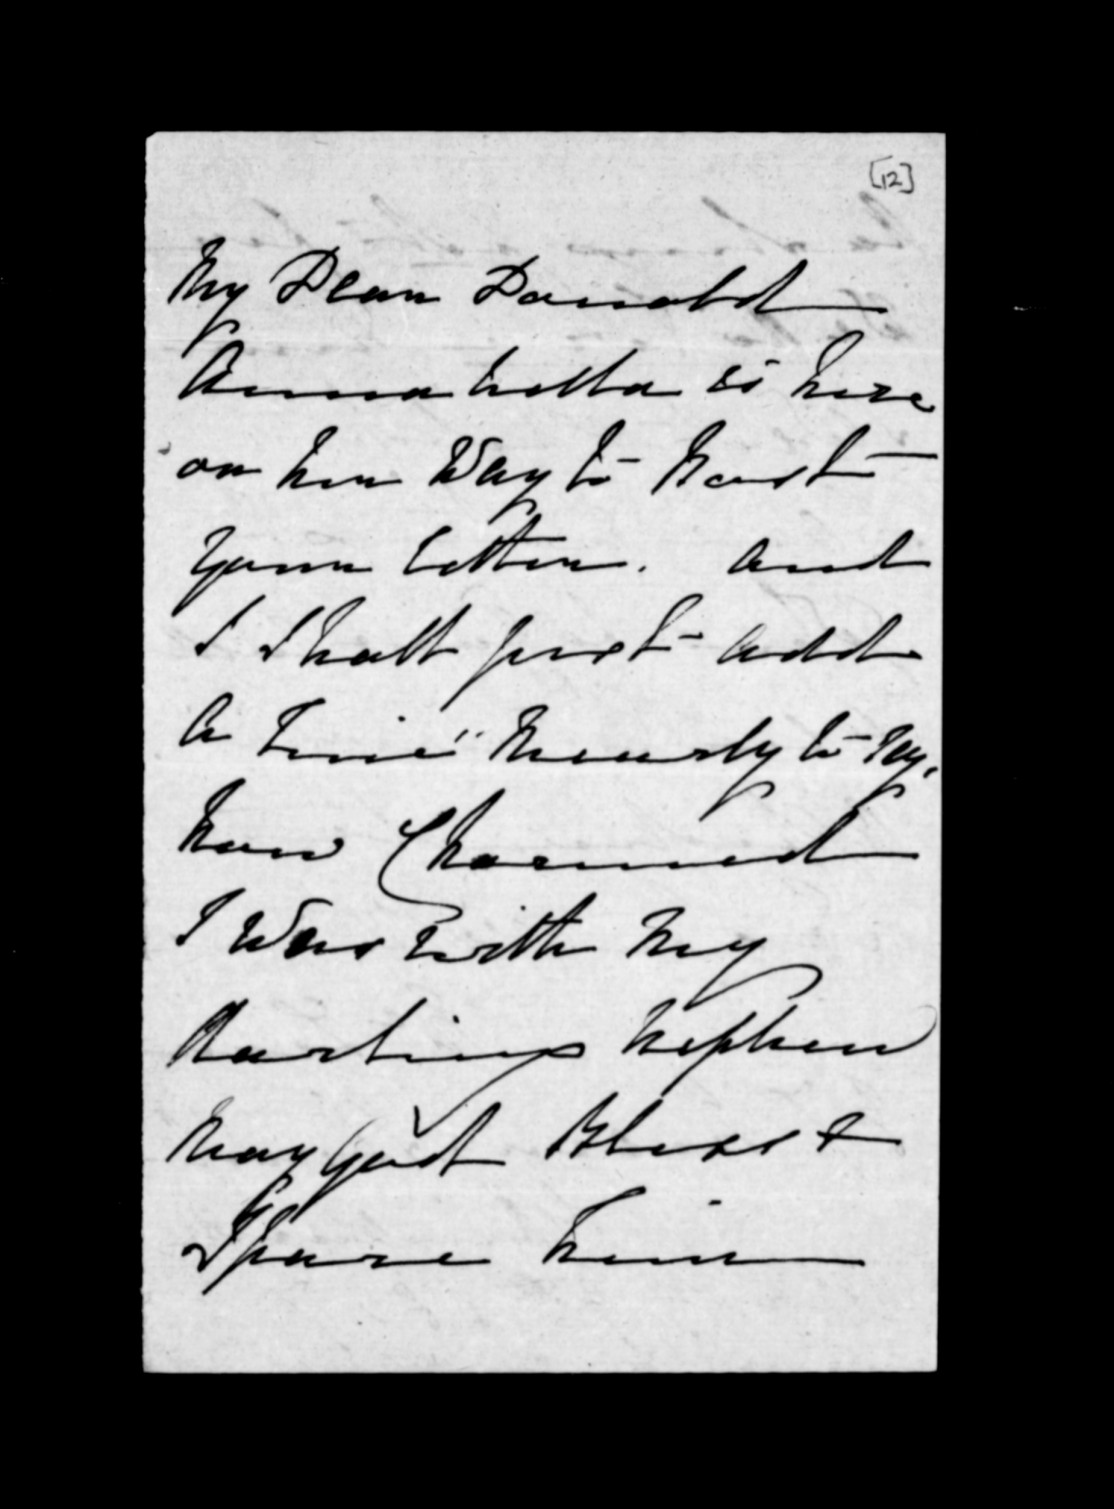 [12]
My Dear Donald
Annabella is here
on her Way to Post
your letter. And
I Shall just add
A Line" Merely to say,
how Charmed
I Was with My
darling Nephew
May God Bless &
Spare him